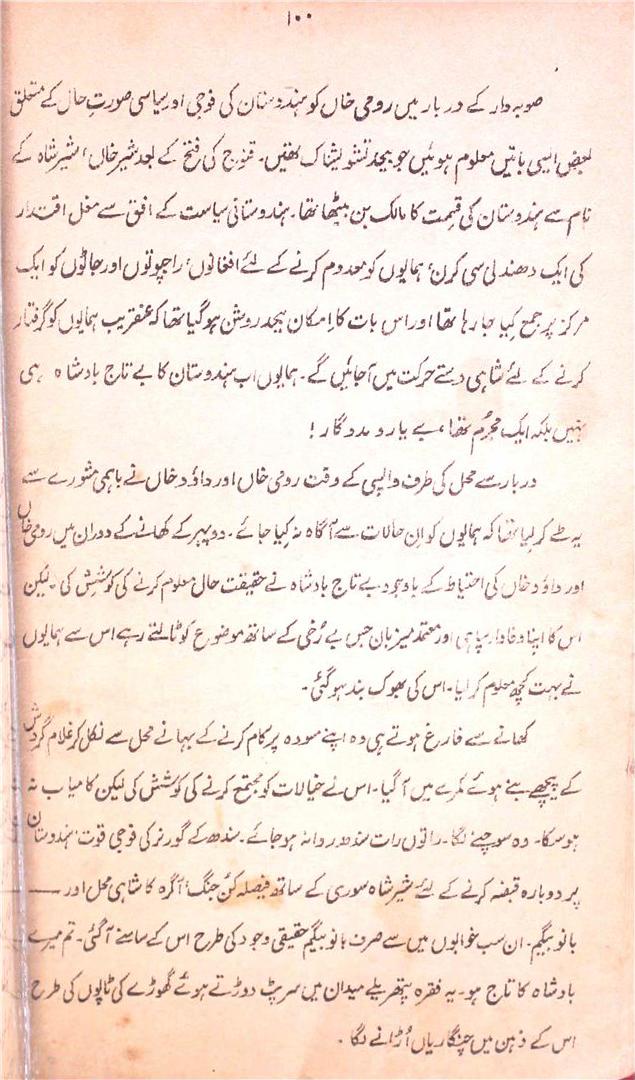 ۱۰۰
صوبہ دار کے دربار میں رومی خاں کو ہندوستان کی فوجی اور سیاسی صورتِ حال کے متعلق
بعض ایسی باتیں معلوم ہوئیں جو بیحد تشویشناک تھیں۔ قنوج کی فتح کے بعد شیرخاں، شیرشاہ کے
نام سے ہندوستان کی قسمت کا مالک بن بیٹھا تھا۔ ہندوستانی سیاست کے افق سے مغل اقتدار
کی ایک دھندلی سی کرن، ہمایوں کو معدوم کرنے کے لئے افغانوں، راجپوتوں اور جاٹوں کو ایک
مرکز پر جمع کیا جا رہا تھا اور اس بات کا امکان بیحد روشن ہو گیا تھا کہ عنقریب ہمایوں کو گرفتار
کرنے کے لئے شاہی دستے حرکت میں آ جائیں گے۔ ہمایوں اب ہندوستان کا بے تاج بادشاہ ہی
نہیں بلکہ ایک مجرم تھا، بے یار و مددگار!
دربار سے محل کی طرف واپسی کے وقت رومی خاں اور داؤد خاں نے باہمی مشورے سے
یہ طے کر لیا تھا کہ ہمایوں کو اِن حالات سے آگاہ نہ کیا جائے۔ دوپہر کے کھانے کے دوران میں رومی خاں
اور داؤد خاں کی احتیاط کے باوجود بے تاج بادشاہ نے حقیقت حال معلوم کرنے کی کوشش کی۔ لیکن
اس کا اپنا وفادار سپاہی اور معتمد میزبان جس بے رُخی کے ساتھ موضوع کو ٹالتے رہے اس سے ہمایوں
نے بہت کچھ معلوم کر لیا۔ اس کی بھوک بند ہو گئی۔
کھانے سے فارغ ہوتے ہی وہ اپنے مسودہ پر کام کرنے کے بہانے محل سے نکل کر غلام گردش
کے پیچھے بنے ہوئے کمرے میں آ گیا۔ اس نے خیالات کو مجتمع کرنے کی کوشش کی لیکن کامیاب نہ
ہو سکا۔ وہ سوچنے لگا۔ راتوں رات سندھ روانہ ہو جائے۔ سندھ کے گورنر کی فوجی قوت، ہندوستان
پر دوبارہ قبضہ کرنے کے لئے شیر شاہ سوری کے ساتھ فیصلہ کُن جنگ، آگرہ کا شاہی محل اور ——
بانو بیگم۔ ان سب خوابوں میں سے صرف بانو بیگم حقیقی وجود کی طرح اس کے سامنے آ گئی۔ تم میرے
بادشاہ کا تاج ہو۔ یہ فقرہ پتھریلے میدان میں سرپٹ دوڑتے ہوئے گھوڑے کی ٹاپوں کی طرح
اس کے ذہن میں چنگاریاں اُڑانے لگا۔